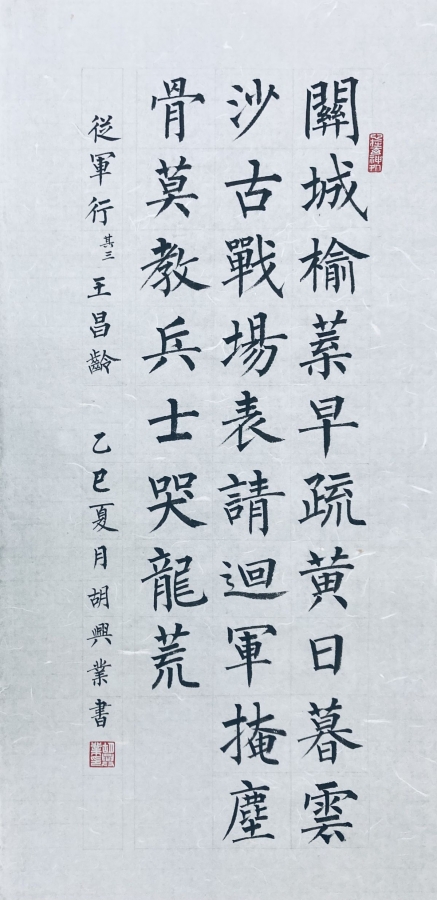 關城榆葉早疏黃日暮雲
沙古戰場表請迴軍掩塵
骨莫教兵士哭龍荒
從軍行 其三 王昌齡 乙巳夏月胡興業書